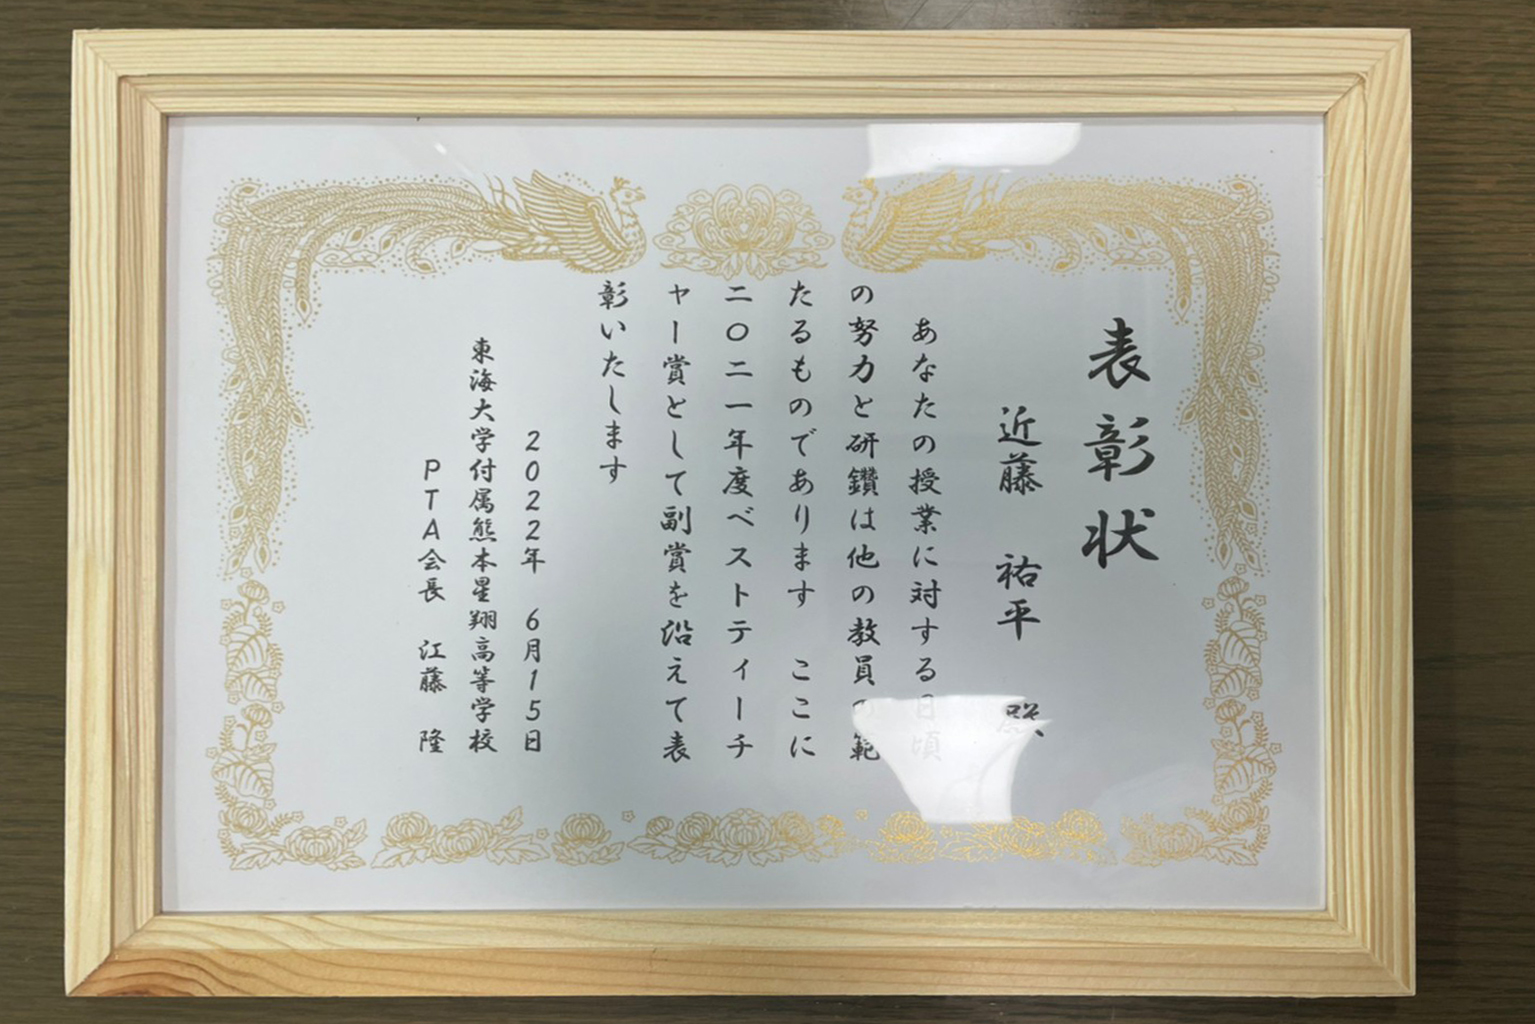 表彰状
近藤 祐平 殿
あなたの授業に対する日頃
の努力と研鑽は他の教員の範
たるものであります ここに
二〇二一年度ベストティーチ
ャー賞として副賞を沿えて表
彰いたします
2022年 6月15日
東海大学付属熊本星翔高等学校
PTA会長 江藤 隆